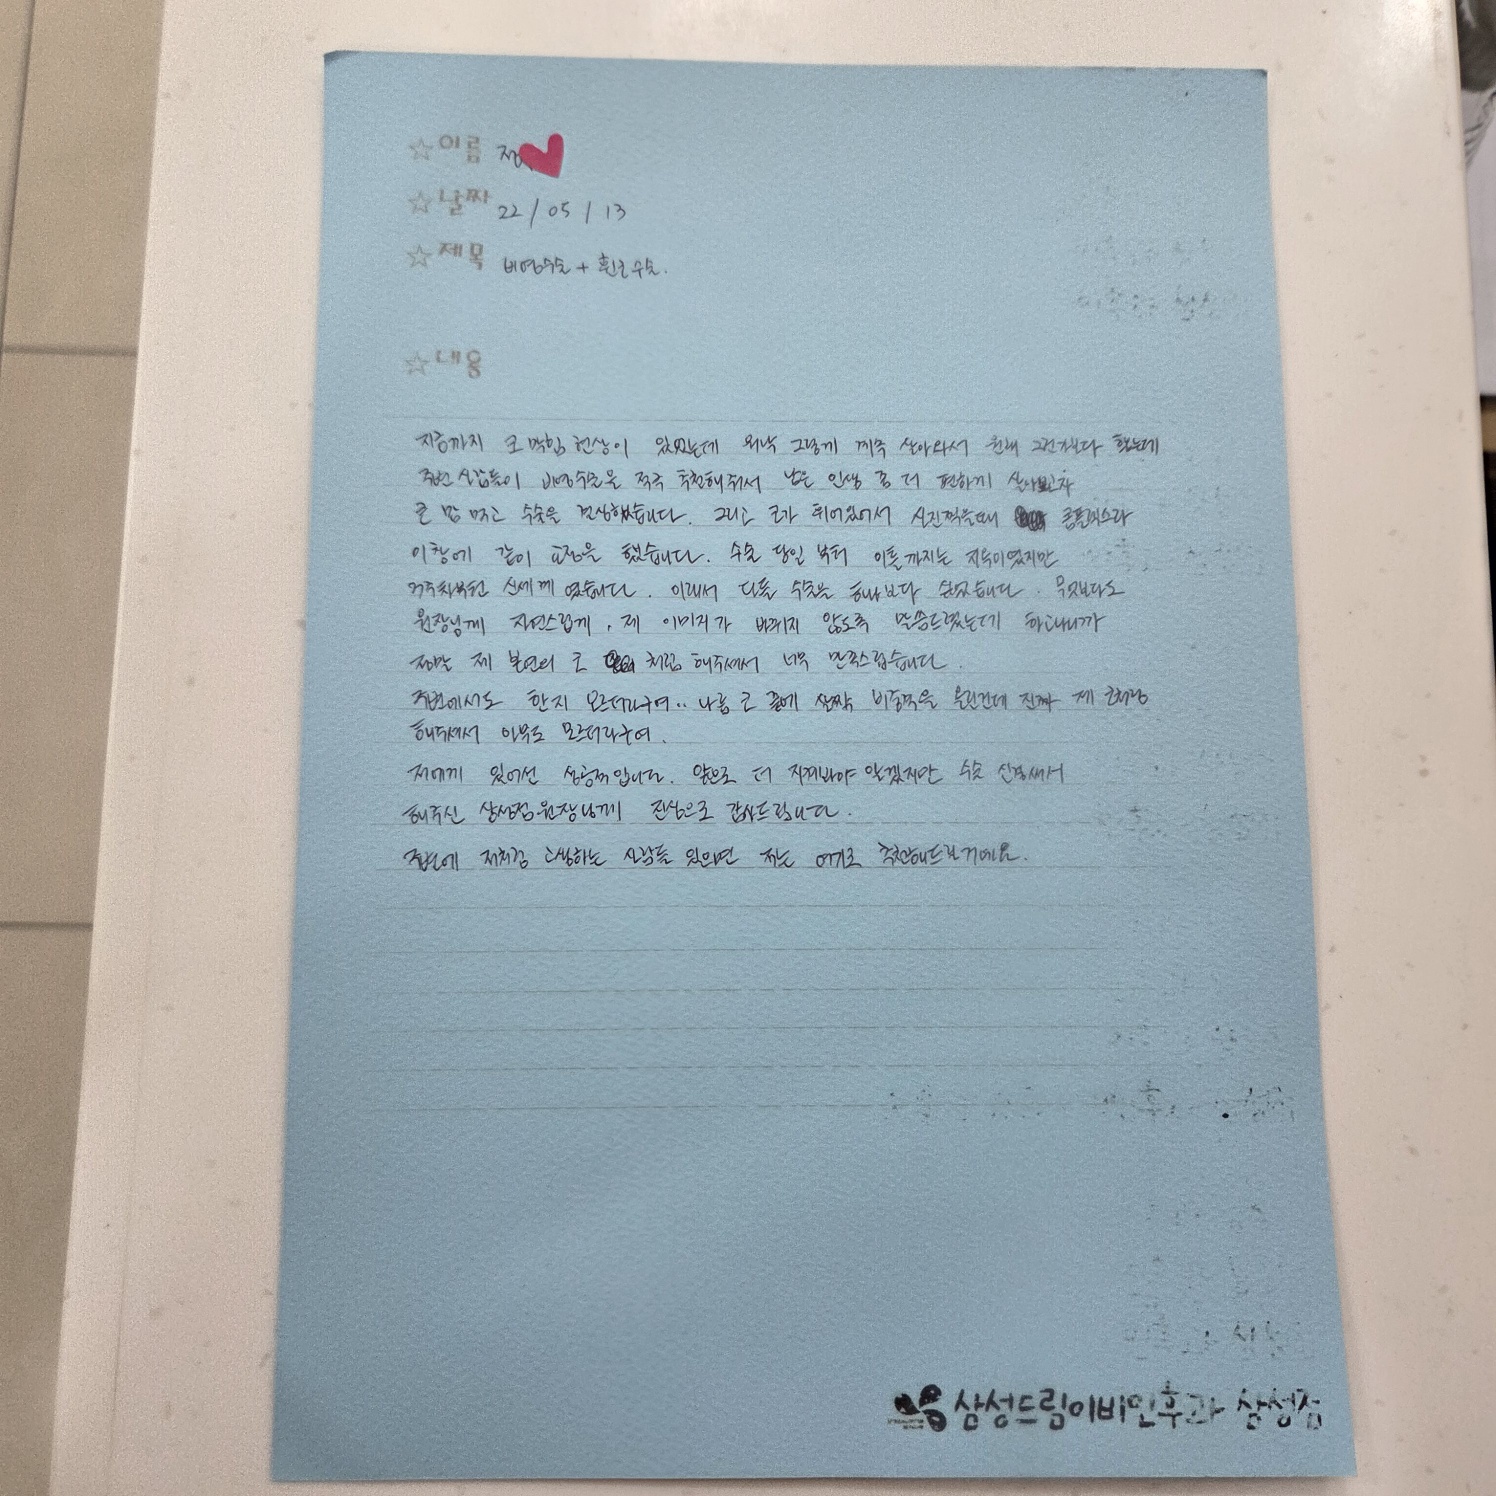 ☆이름 정
☆날짜 22 / 05 / 13
☆제목 비염수술 + 휜코수술.
☆내용
지금까지 코막힘 현상이 있었는데 워낙 그렇게 계속 살아와서 원래 그런가보다 했는데
주변 사람들이 비염수술을 적극 추천해줘서 남은 인생 좀 더 편하게 살아보고자
큰 맘 먹고 수술을 결심했습니다. 그리고 코가 휘어있어서 사진찍을때 콤플렉스라
이참에 같이 교정을 했습니다. 수술 당일 부터 이틀까지는 지옥이였지만
거즈제거한 신세계 였습니다. 이래서 다들 수술을 하나보다 싶었습니다. 무엇보다도
원장님께 자연스럽게, 제 이미지가 바뀌지 않도록 말씀드렸는데 하고나니까
정말 제 본연의 코 처럼 해주셔서 너무 만족스럽습니다.
주변에서도 한지 모르더라구여.. 나름 코 끝에 살짝 비중격을 올린건데 진짜 제 코처럼
해주셔서 아무도 모르더라구여.
저에게 있어선 성공적입니다. 앞으로 더 지켜봐야 알겠지만 수술 신경써서
해주신 삼성점 원장님께 진심으로 감사드립니다.
주변에 저처럼 고생하는 사람들 있으면 저는 여기로 추천해드릴거예요.
삼성드림이비인후과 삼성점